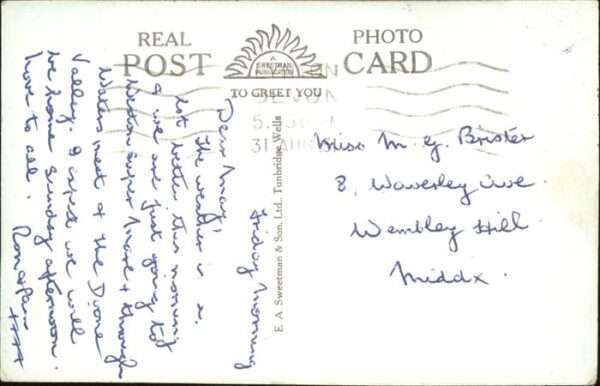 REAL PHOTO
POST CARD
A
SWEETMAN
PUBLICATION
TO GREET YOU
DEVON
31 AUG
E. A. Sweetman & Son, Ltd., Tunbridge Wells
Friday Morning
Dear May,
The weather is a
lot better this morning
& we are just going to
Weston Super Mare & through
Waters meet & the Doone
Valley. I expect we will
be home Sunday afternoon.
Love to all.
Miss M. G. Brister
8, Waverley Ave.
Wembley Hill
Middx.